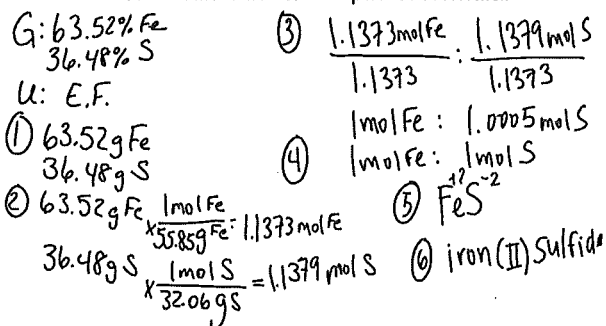 G: 63.52% Fe
36.48% S
U: E.F.
① 63.52g Fe
36.48g S
② 63.52g Fe x 1mol Fe / 55.85g Fe = 1.1373 mol Fe
36.48g S x 1mol S / 32.06gS = 1.1379 mol S
③ 1.1373 mol Fe / 1.1373 : 1.1379 mol S / 1.1373
1 mol Fe : 1.0005 mol S
④ 1 mol Fe : 1 mol S
⑤ Fe⁺²S⁻²
⑥ iron (II) Sulfide